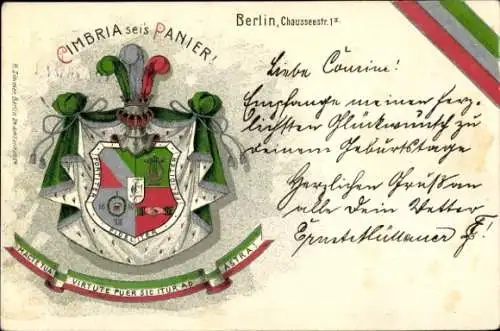 CIMBRIA sei's PANIER!
Berlin, Chausseestr. 1
Liebe Cousine!
Empfange meinen herz-
lichsten Glückwunsch zu
deinem Geburtstage
Herzlichen Gruß an
alle Dein Vetter
Ernst
FIDELITER
MACTE TUA VIRTUTE PUER SIC ITUR AD ASTRA!